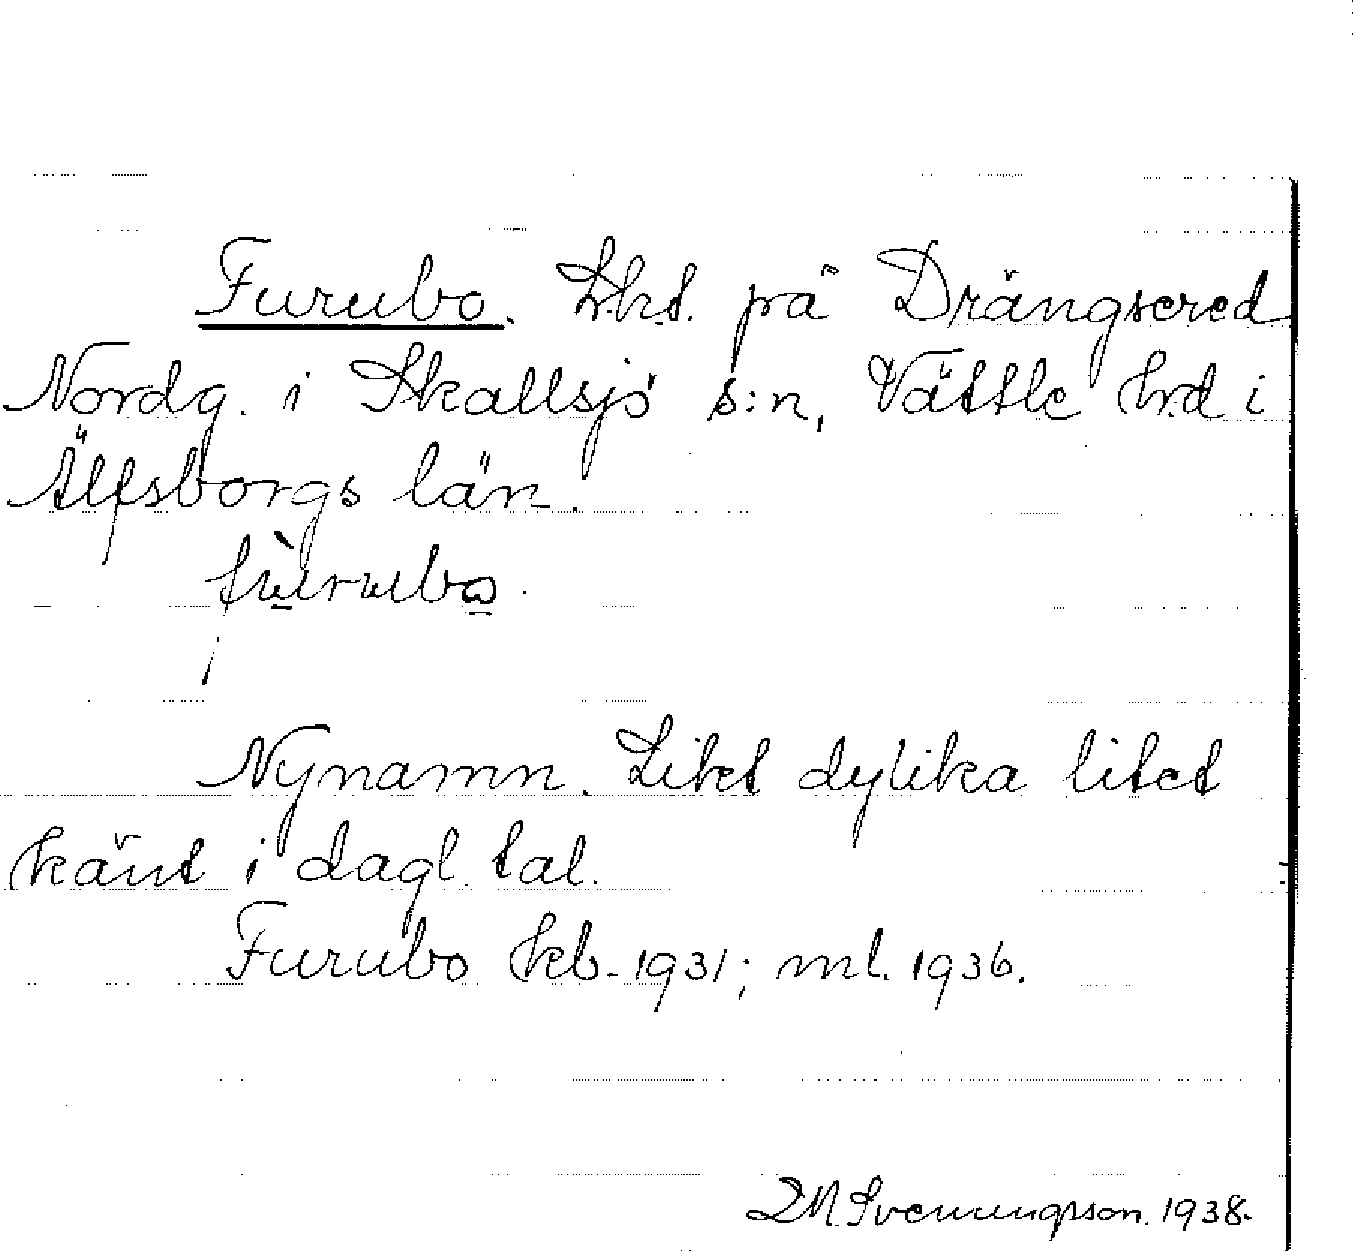 Furubo. Lht. på Drängsered
Nordg. i Skallsjö s:n, Vättle hrd i
Älfsborgs län.
fùrubo.
Nynamn. Likt dylika litet
känt i dagl. tal.
Furubo kb. 1931; ml. 1936.
Svenungsson. 1938.